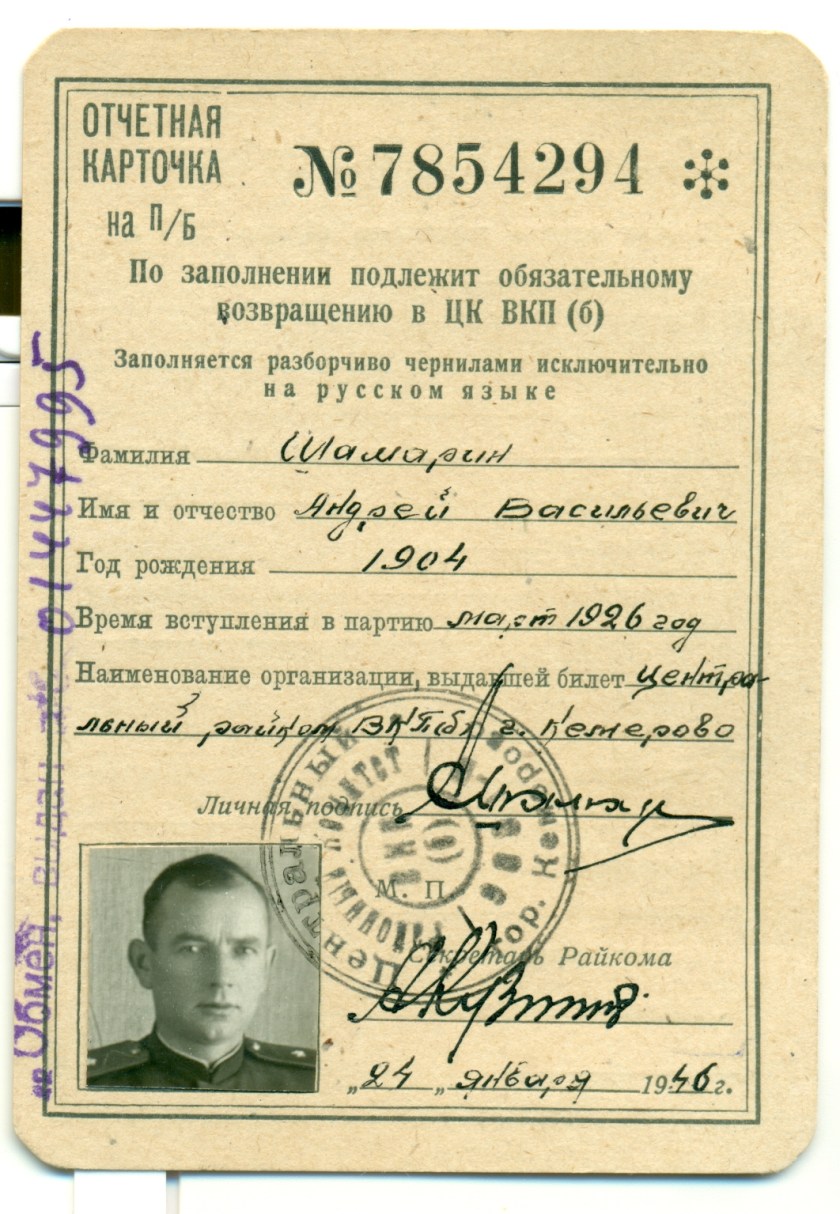 ОТЧЕТНАЯ
КАРТОЧКА
на П/Б
№ 7854294
По заполнении подлежит обязательному
возвращению в ЦК ВКП (б)
Заполняется разборчиво чернилами исключительно
на русском языке
Фамилия Шамарин
Имя и отчество Андрей Васильевич
Год рождения 1904
Время вступления в партию март 1926 год
Наименование организации, выдавшей билет Центра-
льный райком ВКПбл г. Кемерово
Личная подпись
М. П.
Секретарь Райкома
„24 „ января 1946 г.
Центральный
районный комитет
ВКП
(б)
гор. Кемерово
Обмен, выдан 01447995